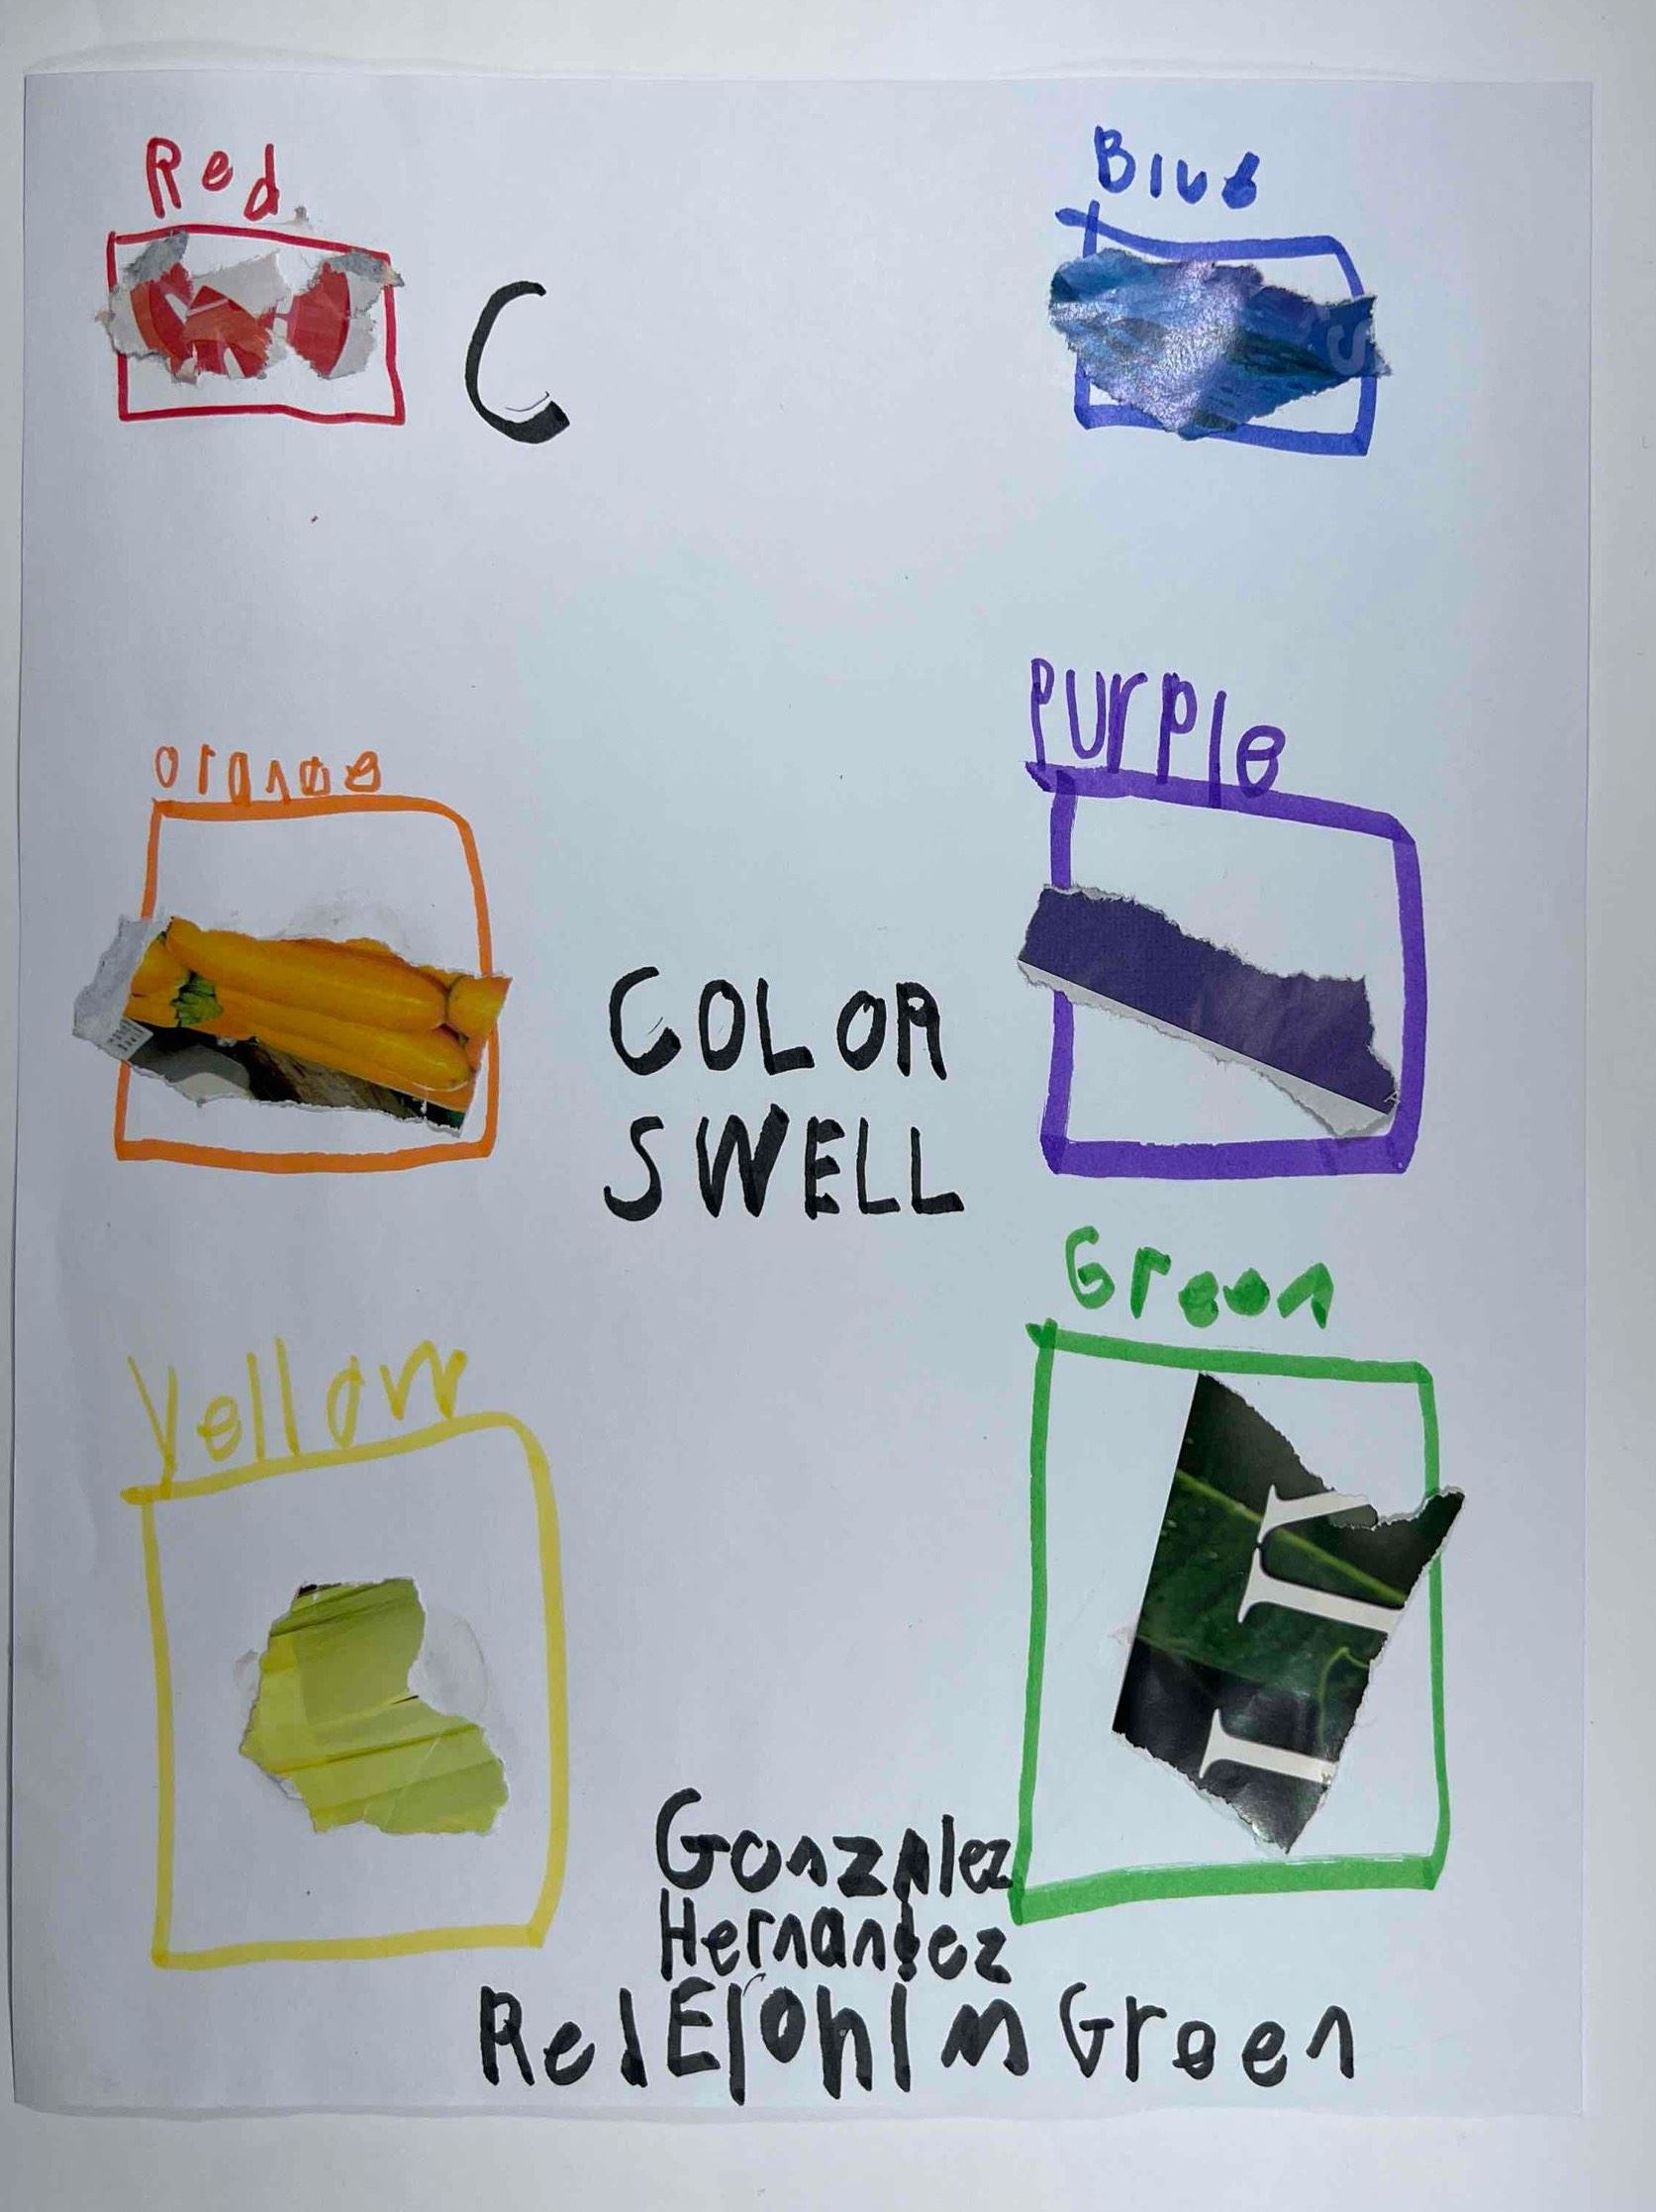 Red
Blue
C
Purple
orange
COLOR
SWELL
Green
Yellow
Gonzalez
Hernandez
Red Elohim Green